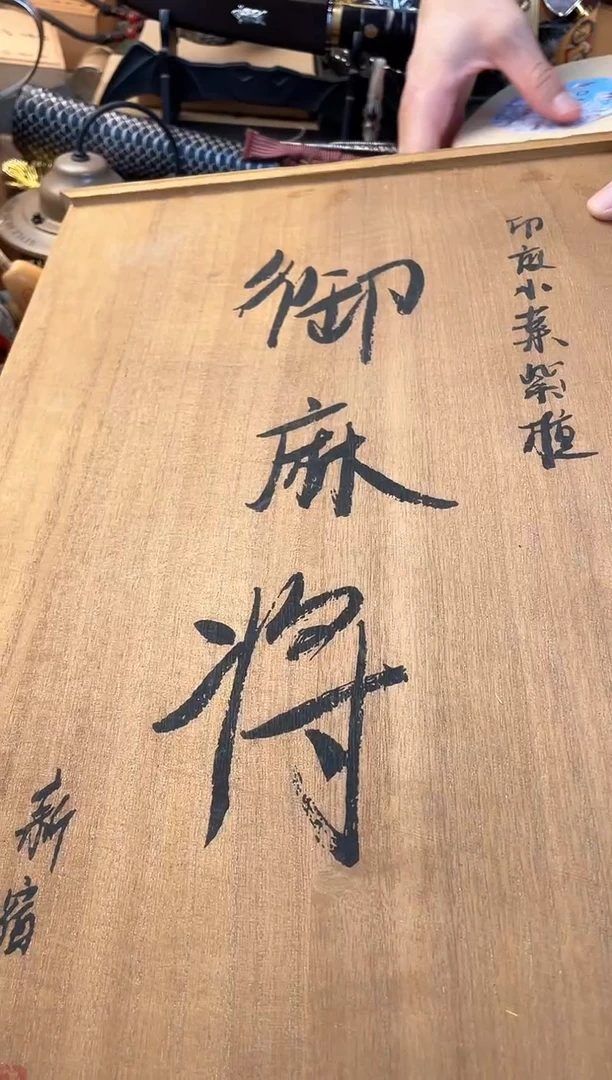 印度小葉紫檀
御麻将
新宿